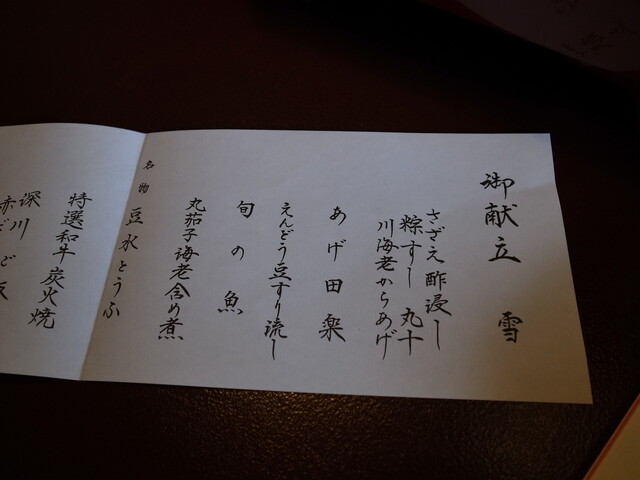 御献立 雪
さざえ酢浸し
粽すし 丸十
川海老からあげ
あげ田楽
えんどう豆すり流し
旬の魚
丸茄子海老含め煮
名物 豆水とうふ
特選和牛炭火焼
深川
赤だし